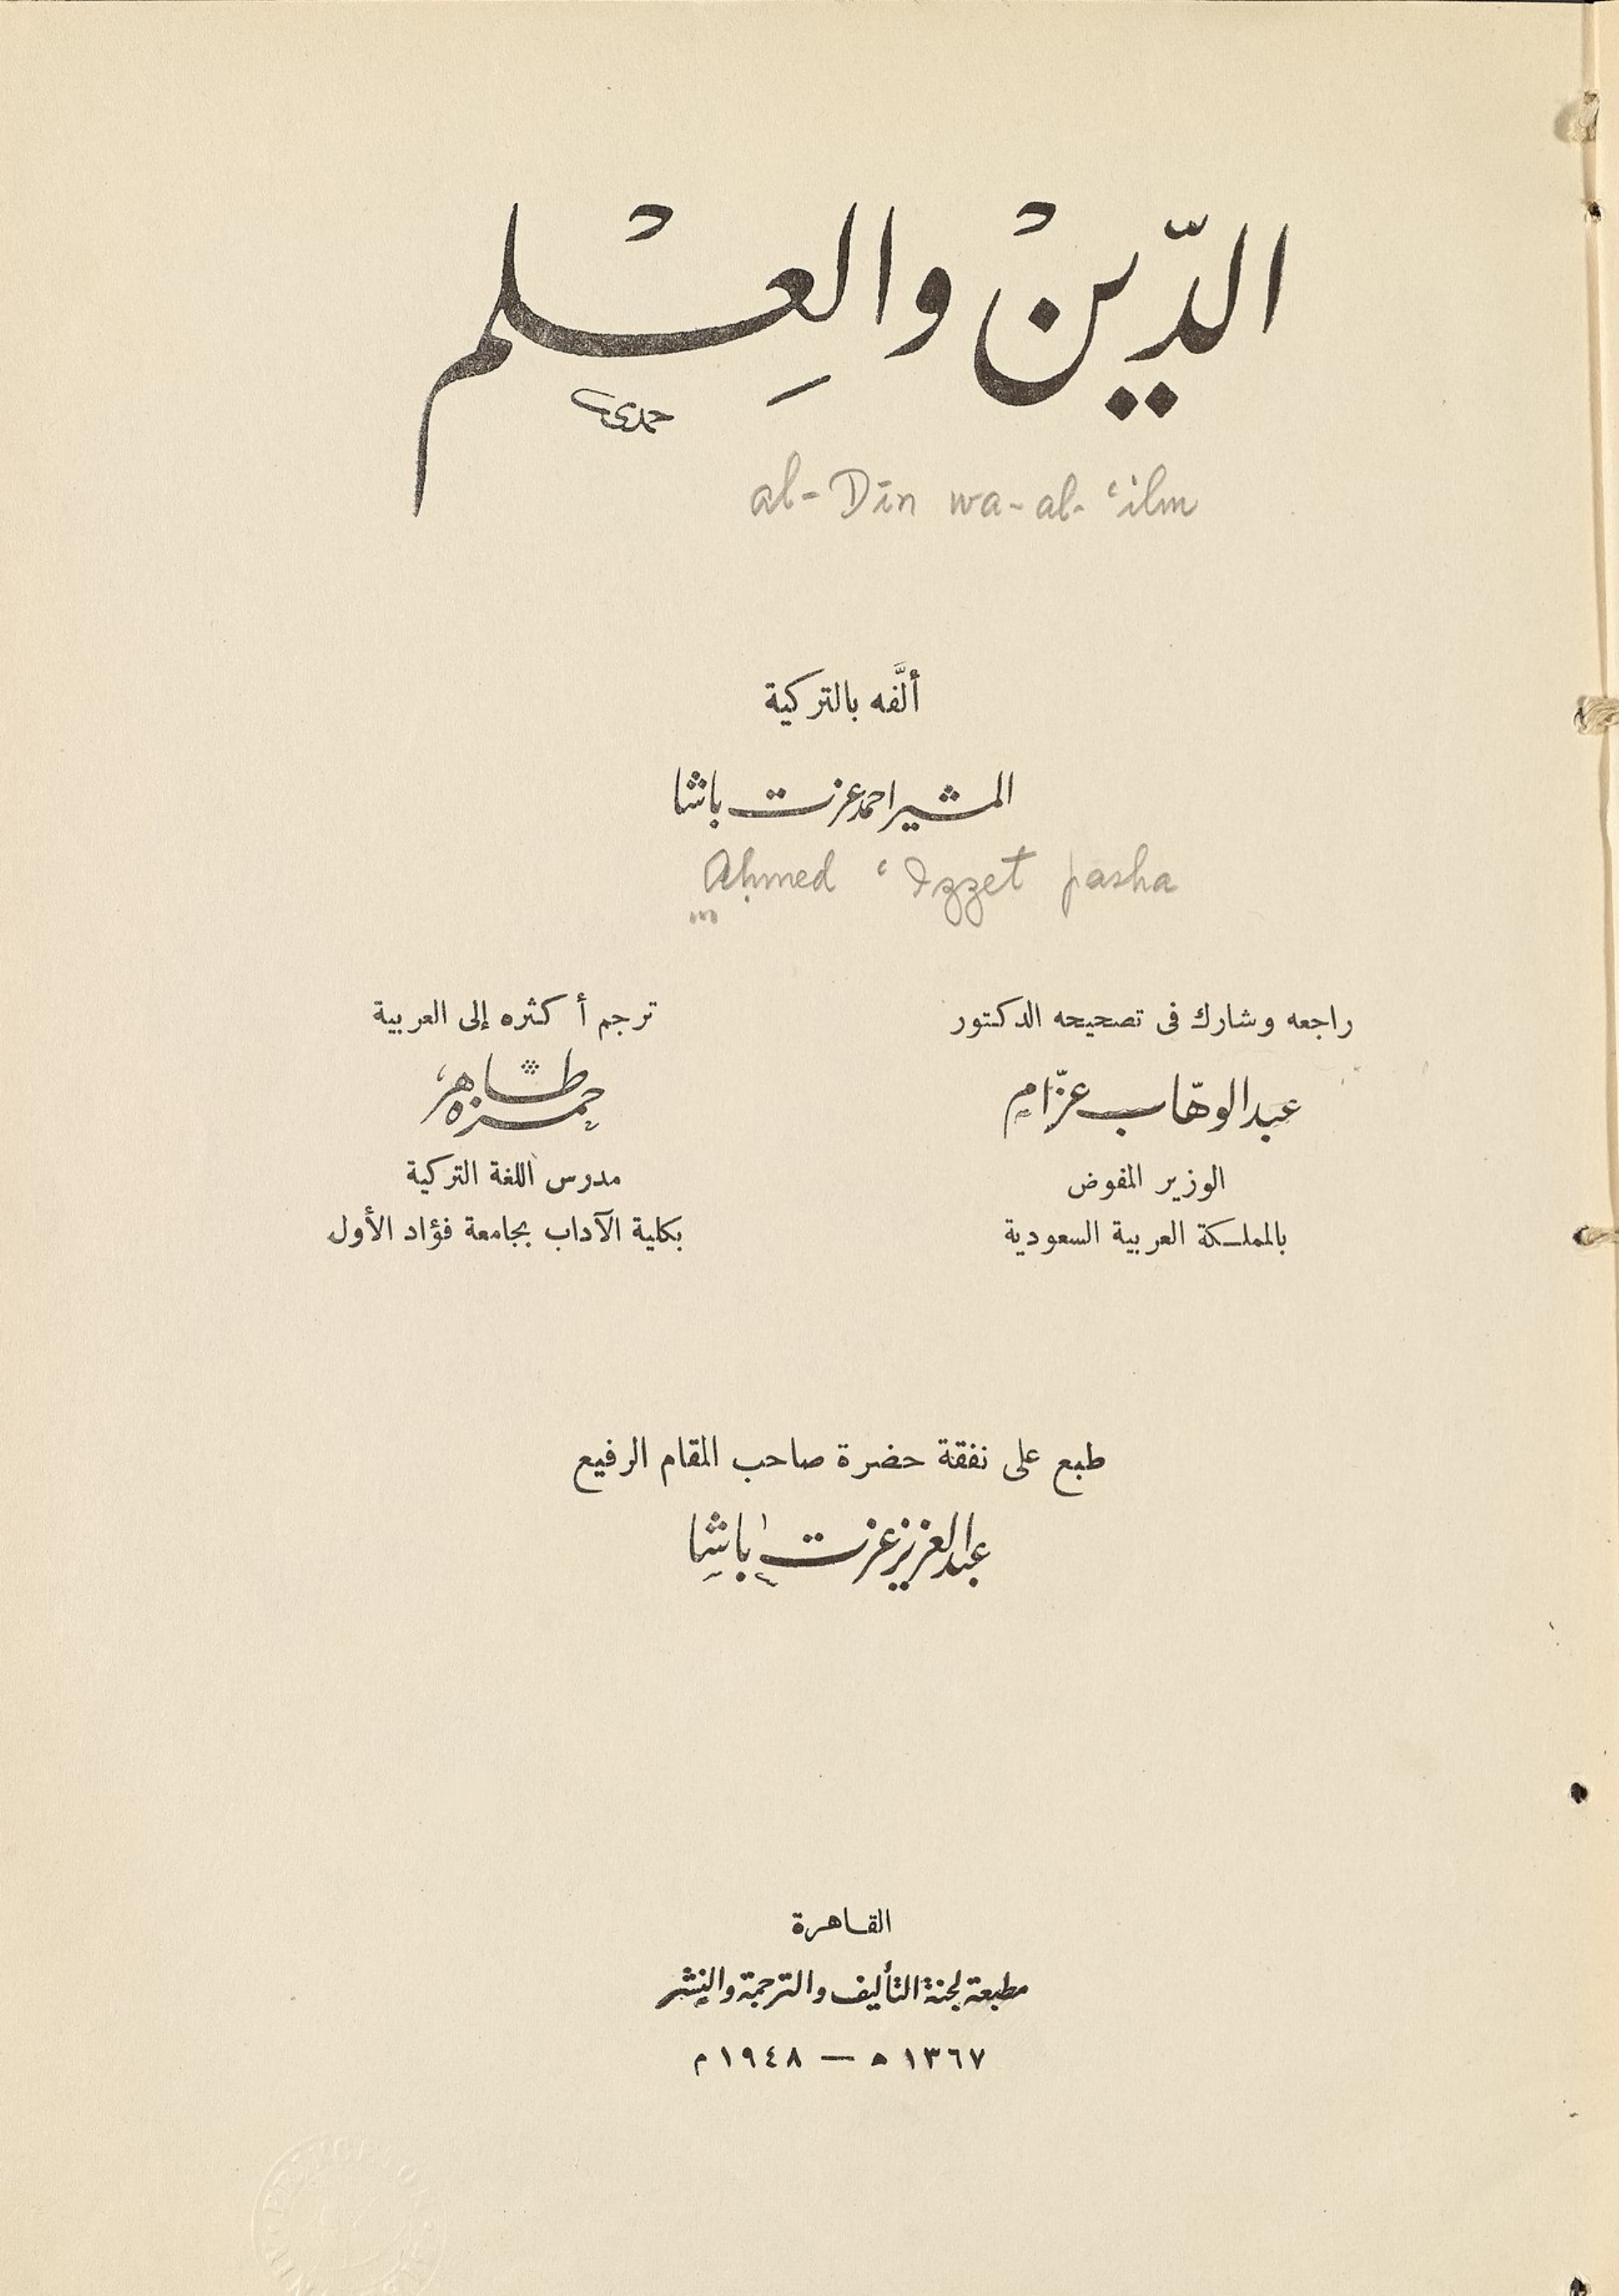 الدّينْ والعِلْم
حمدي
al-Dīn wa-al-ʿilm
ألَّفه بالتركية
المشير احمد عزت باشا
Aḥmed ʿIzzet pasha
راجعه وشارك فى تصحيحه الدكتور
عبد الوهّاب عزّام
الوزير المفوض
بالمملكة العربية السعودية
ترجم أكثره إلى العربية
حمزه طاهر
مدرس اللغة التركية
بكلية الآداب بجامعة فؤاد الأول
طبع على نفقة حضرة صاحب المقام الرفيع
عبد العزيز عزت باشا
القاهرة
مطبعة لجنة التأليف والترجمة والنشر
١٣٦٧ ه — ١٩٤٨ م